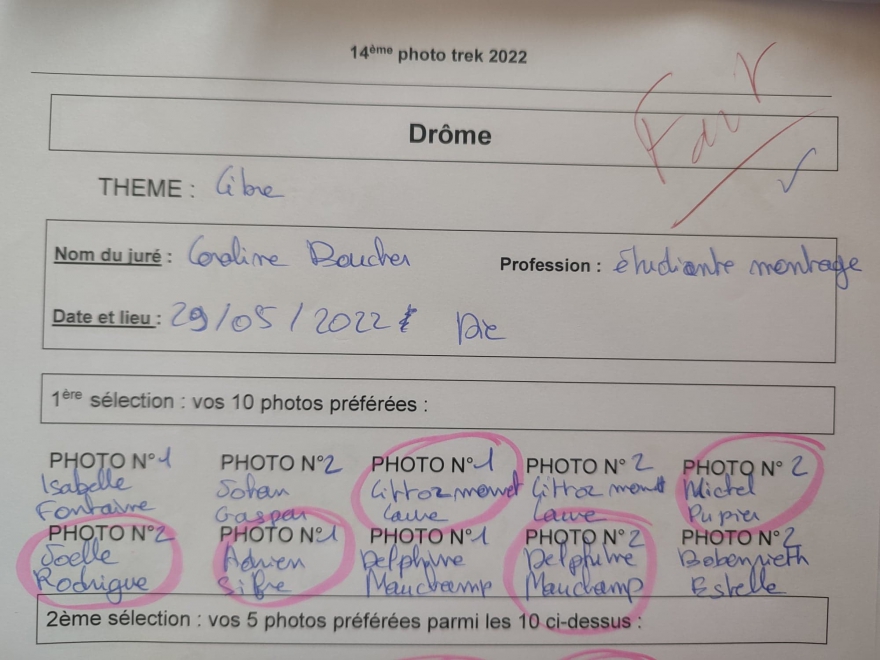 14ème photo trek 2022
Fait
Drôme
THEME : Libre
Nom du juré : Coraline Boucher Profession : étudiante montage
Date et lieu : 29/05/2022 Die
1ère sélection : vos 10 photos préférées :
PHOTO N°1 PHOTO N°2 PHOTO N°1 PHOTO N° 2 PHOTO N° 2
Isabelle Johan Cittoz monet Cittoz monet Michel
Fontaine Gaspar Laure Laure Pupier
PHOTO N°2 PHOTO N°1 PHOTO N°1 PHOTO N° 2 PHOTO N°2
Joelle Adrien Delphine Delphine Bobenrieth
Rodrigue Sifre Mauchamp Mauchamp Estelle
2ème sélection : vos 5 photos préférées parmi les 10 ci-dessus :